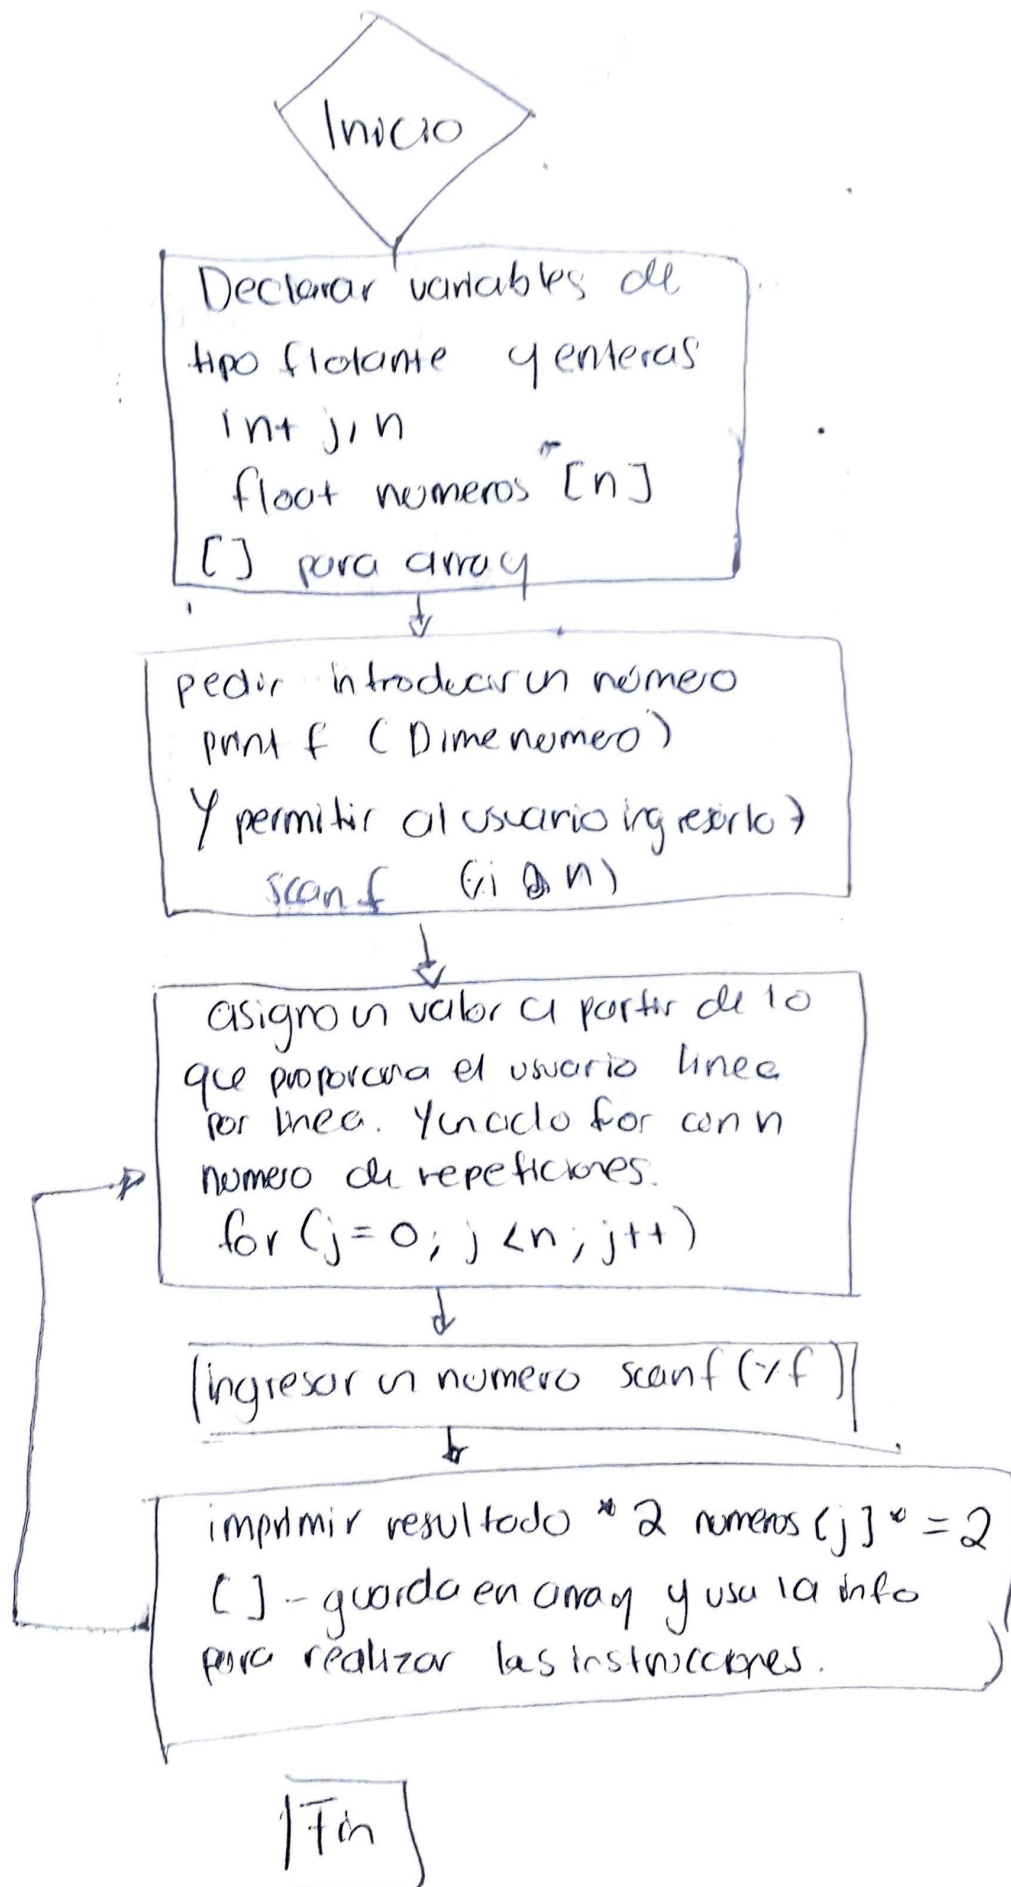 Inicio
Declarar variables de
tipo flotante y enteras
int j, n
float numeros [n]
[] para array
pedir introducir un número
print f (Dime numero)
Y permitir al usuario ingresarlo
scan f (i & n)
asigno un valor a partir de lo
que proporciona el usuario linea
por linea. Y un ciclo for con n
numero de repeticiones.
for (j = 0; j < n; j++)
ingresar un numero scanf (%f)
imprimir resultado * 2 numeros [j] * = 2
[] - guarda en array y usa la info
para realizar las instrucciones.
Fin